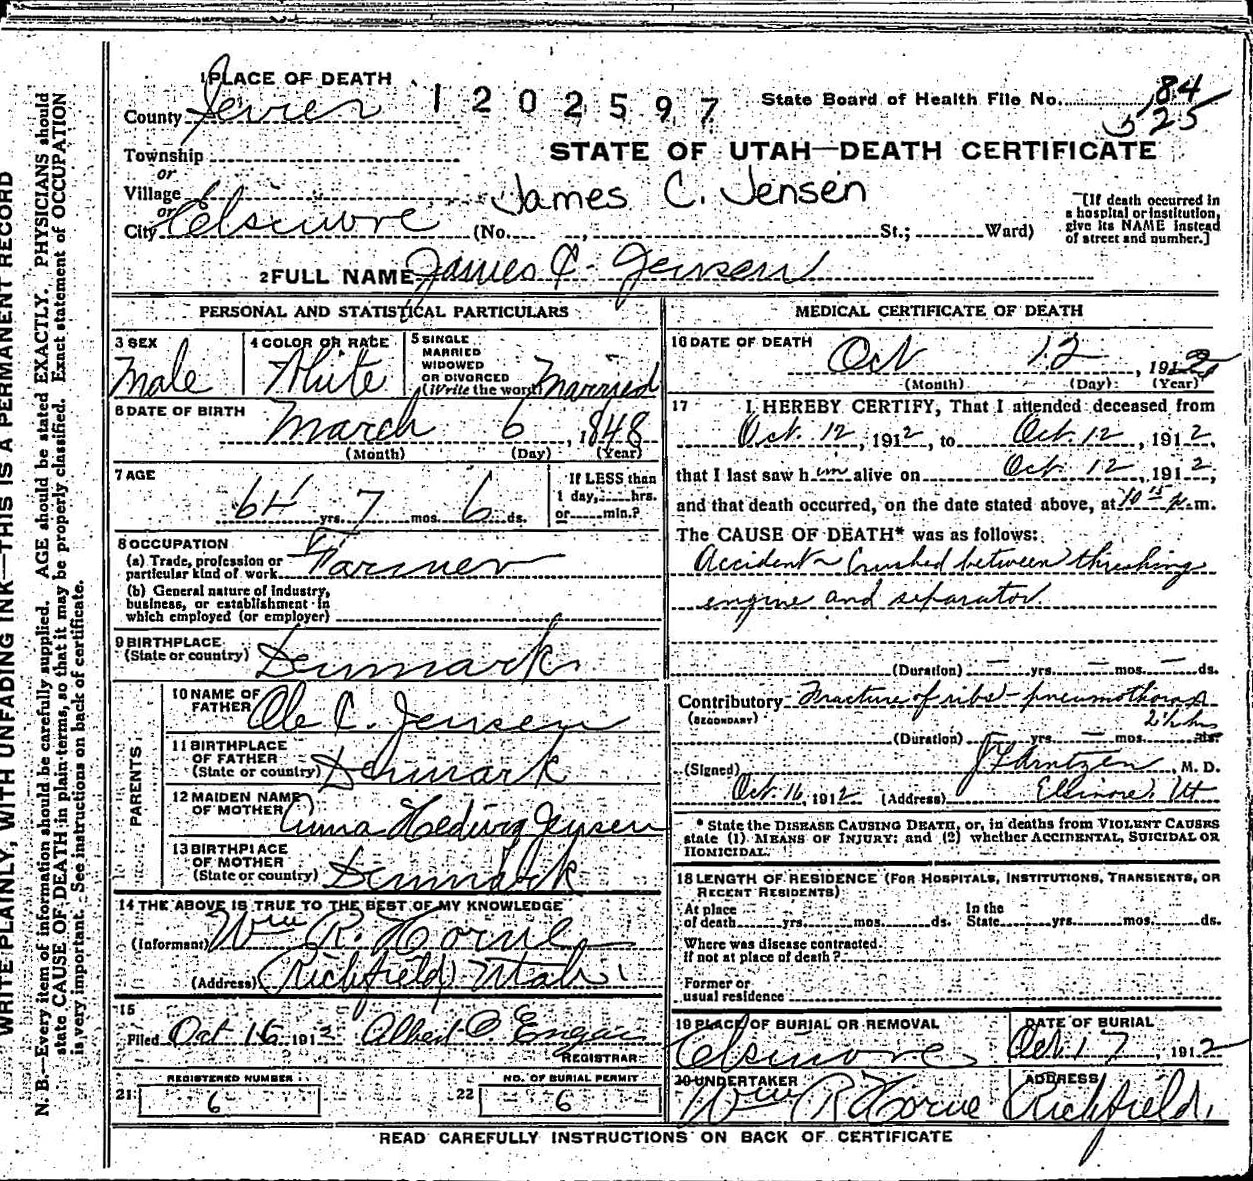 WRITE PLAINLY, WITH UNFADING INK—THIS IS A PERMANENT RECORD
N. B.—Every item of information should be carefully supplied. AGE should be stated EXACTLY. PHYSICIANS should
state CAUSE OF DEATH in plain terms, so that it may be properly classified. Exact statement of OCCUPATION
is very important. See instructions on back of certificate.
1 PLACE OF DEATH
1202597
State Board of Health File No. 84
525
County Sevier
STATE OF UTAH—DEATH CERTIFICATE
Township
or
Village
James C. Jensen
or
City Elsinore (No. , St.; Ward)
[If death occurred in
a hospital or institution,
give its NAME instead
of street and number.]
2 FULL NAME James C. Jensen
PERSONAL AND STATISTICAL PARTICULARS
3 SEX
Male
4 COLOR OR RACE
White
5 SINGLE
MARRIED
WIDOWED
OR DIVORCED
(Write the word) Married
6 DATE OF BIRTH
March 6, 1848
(Month) (Day) (Year)
7 AGE
64 yrs. 7 mos. 6 ds.
If LESS than
1 day, hrs.
or min.?
8 OCCUPATION
(a) Trade, profession or
particular kind of work Farmer
(b) General nature of industry,
business, or establishment in
which employed (or employer)
9 BIRTHPLACE
(State or country) Denmark
PARENTS
10 NAME OF
FATHER Ole C. Jensen
11 BIRTHPLACE
OF FATHER
(State or country) Denmark
12 MAIDEN NAME
OF MOTHER Anna Hedwig Jensen
13 BIRTHPLACE
OF MOTHER
(State or country) Denmark
14 THE ABOVE IS TRUE TO THE BEST OF MY KNOWLEDGE
(Informant) Wm R. Horne
(Address) Richfield Utah.
15
Filed Oct 16 1912 Albert
REGISTRAR
REGISTERED NUMBER
21 6
NO. OF BURIAL PERMIT
22 6
MEDICAL CERTIFICATE OF DEATH
16 DATE OF DEATH
Oct 12, 1912
(Month) (Day) (Year)
17 I HEREBY CERTIFY, That I attended deceased from
Oct. 12, 1912, to Oct. 12, 1912,
that I last saw him alive on Oct. 12, 1912,
and that death occurred, on the date stated above, at 10 15 m.
The CAUSE OF DEATH* was as follows:
Accident - Crushed between threshing
engine and separator.
(Duration) — yrs. — mos. — ds.
Contributory Fracture of ribs - pneumothorax
(SECONDARY)
2½ hrs
(Duration) — yrs. — mos. ds.
(Signed) , M. D.
Oct. 16, 1912 (Address) Elsinore, Ut
* State the DISEASE CAUSING DEATH, or, in deaths from VIOLENT CAUSES
state (1) MEANS OF INJURY; and (2) whether ACCIDENTAL, SUICIDAL OR
HOMICIDAL.
18 LENGTH OF RESIDENCE (FOR HOSPITALS, INSTITUTIONS, TRANSIENTS, OR
RECENT RESIDENTS)
At place
of death yrs. mos. ds.
In the
State yrs. mos. ds.
Where was disease contracted
if not at place of death?
Former or
usual residence
19 PLACE OF BURIAL OR REMOVAL
Elsinore
DATE OF BURIAL
Oct. 17, 1912
20 UNDERTAKER
Wm R Horne
ADDRESS
Richfield.
READ CAREFULLY INSTRUCTIONS ON BACK OF CERTIFICATE